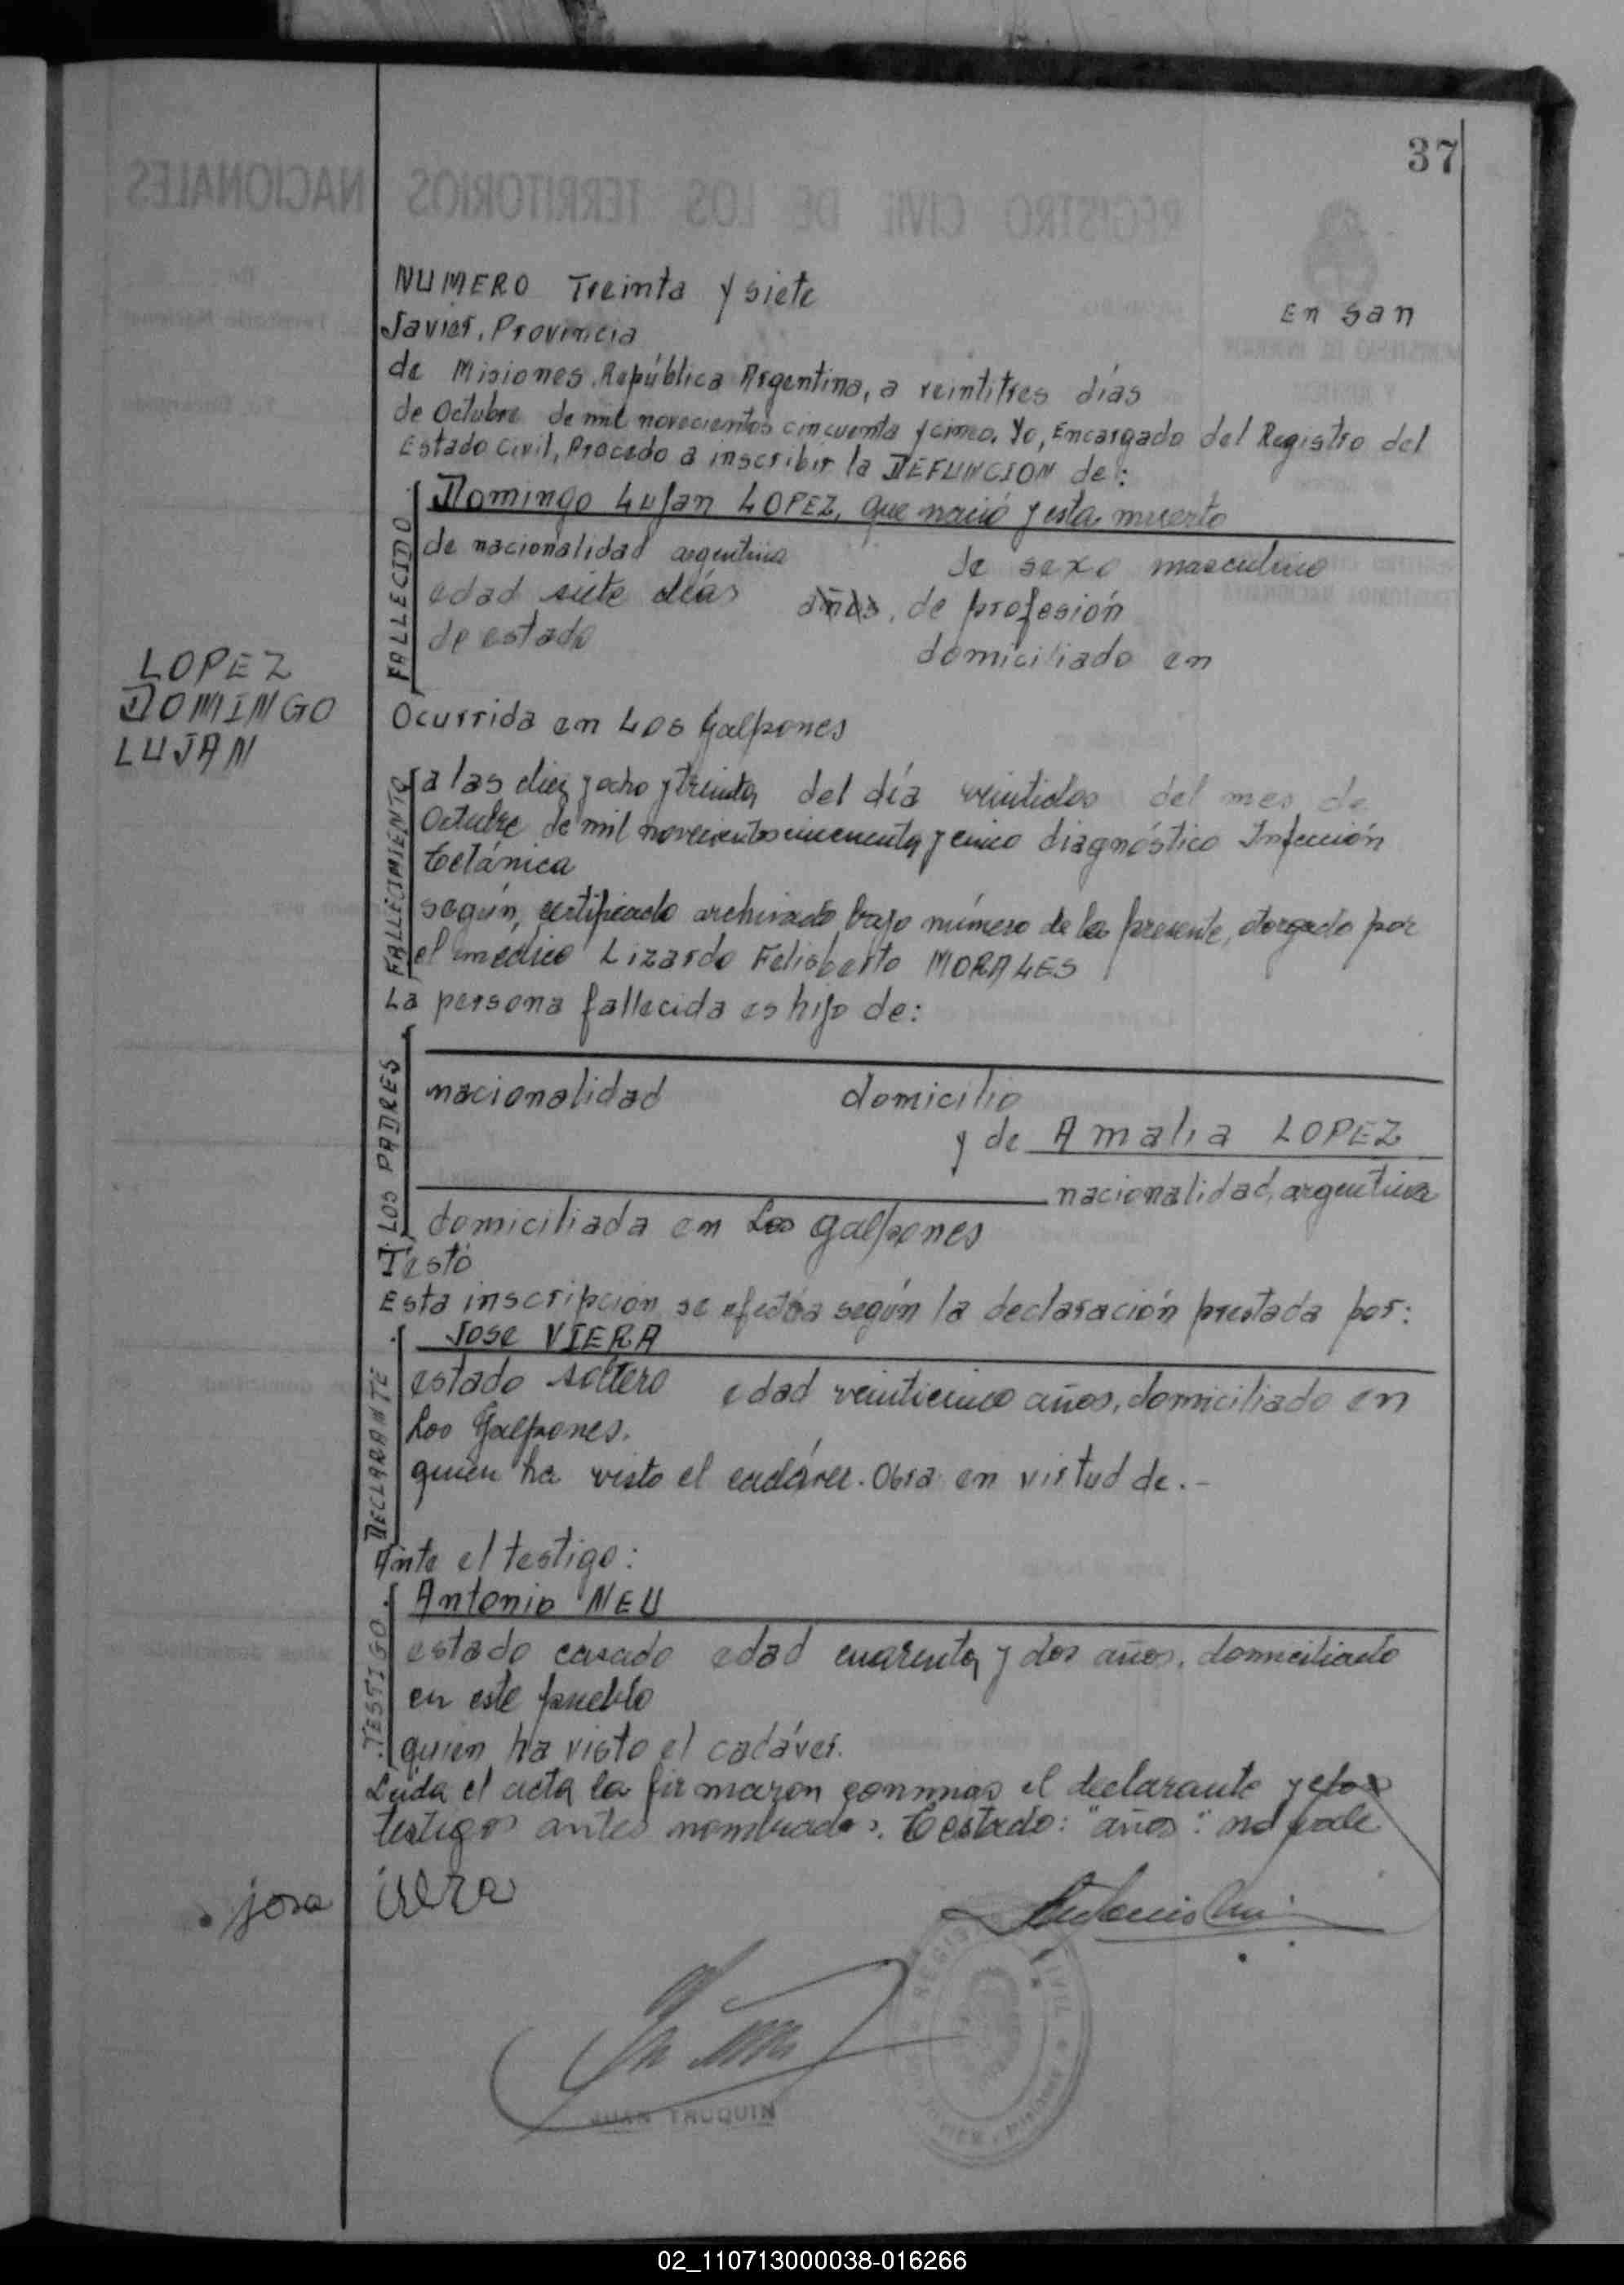 37
NUMERO Treinta y siete
En San
Javier, Provincia
de Misiones, República Argentina, a veintitres días
de Octubre de mil novecientos cincuenta y cinco. Yo, Encargado del Registro del
Estado Civil, Procedo a inscribir la DEFUNCION de:
FALLECIDO
Domingo Lujan LOPEZ, que nació y esta muerto
de nacionalidad argentina de sexo masculino
edad siete días años, de profesión
de estado domiciliado en
LOPEZ
DOMINGO
LUJAN
Ocurrida en Los Galpones
FALLECIMIENTO
a las diez y ocho y treinta del día veintidos del mes de
Octubre de mil novecientos cincuenta y cinco diagnóstico Infección
tetánica
según, certificado archivado bajo número de la presente, otorgado por
el médico Lizardo Felisberto MORALES
La persona fallecida es hijo de:
LOS PADRES
nacionalidad domicilio
y de Amalia LOPEZ
nacionalidad, argentina
domiciliada en Los galpones
Testó
Esta inscripción se efectúa según la declaración prestada por:
DECLARANTE
Jose VIERA
estado soltero edad veinticinco años, domiciliado en
Los Galpones.
quien ha visto el cadáver. Obra en virtud de.-
Ante el testigo:
TESTIGO
Antonio NEU
estado casado edad cuarenta y dos años, domiciliado
en este pueblo
quien ha visto el cadáver.
Leída el acta la firmaron conmigo el declarante y los
testigos antes nombrados. Testado: "años": no vale
JUAN TRUQUIN
02_110713000038-016266